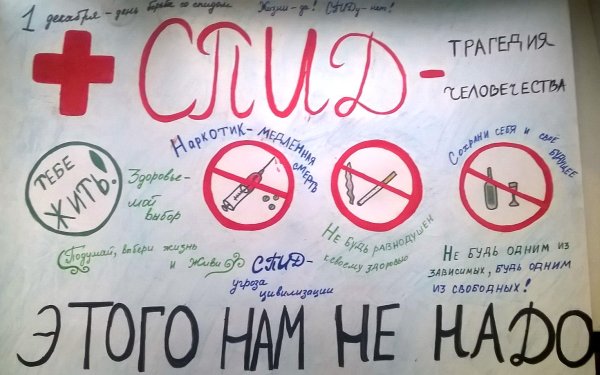 1 декабря - день борьбы со спидом
Жизни - да! СПИДу - нет!
СПИД -
ТРАГЕДИЯ
ЧЕЛОВЕЧЕСТВА
ТЕБЕ
ЖИТЬ!
Здоровье-
мой
выбор
Наркотик - медленная
смерть
Не будь равнодушен
к своему здоровью
Сохрани себя и своё
будущее
Подумай, выбери жизнь
и живи
СПИД -
угроза
цивилизации
Не будь одним из
зависимых, будь одним
из свободных!
ЭТОГО НАМ НЕ НАДО